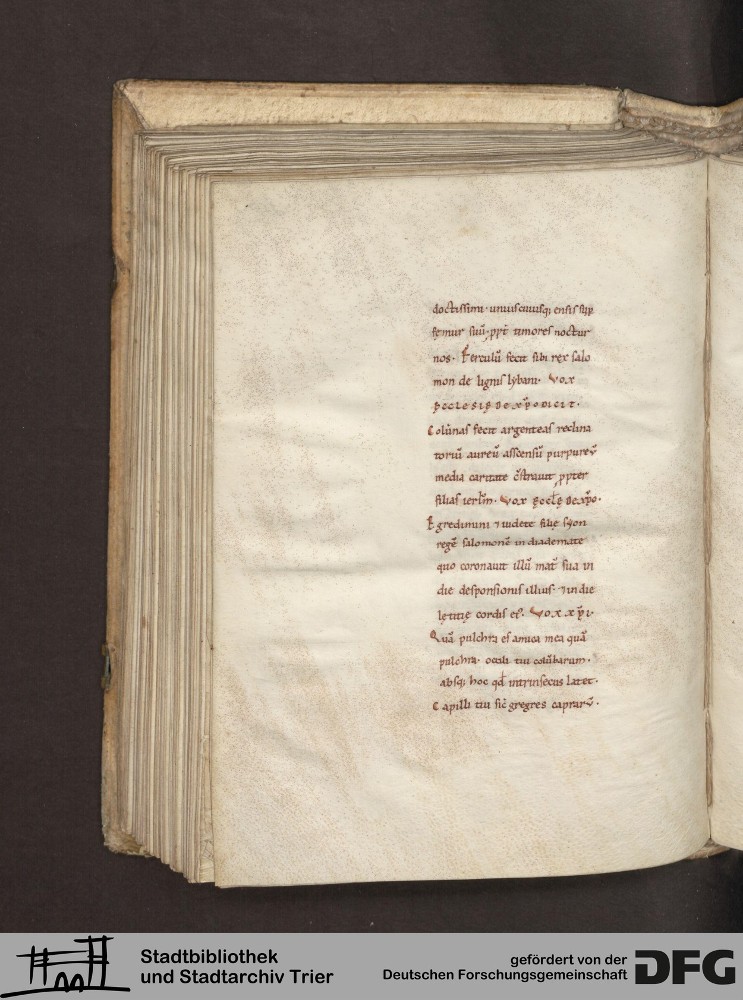 doctissimi · uniuscuiusq; ensis sup
femur suũ · ppt̃ timores noctur
nos · Ferculũ fecit sibi rex salo
mon de lignis lybani · Vox
ęcclesię de xp̃o dicit ·
Colũnas fecit argenteas reclina
toriũ aureũ ascensũ purpureũ
media caritate cõstrauit ppter
filias ierl̃m · Vox ęccl̃ę de xp̃o ·
Egredimini ⁊ uidete filię syon
regẽ salomonẽ in diademate
quo coronauit illũ mat̃ sua in
die desponsionis illius · ⁊ in die
lętitię cordis ei⁹ · Vox xp̃i ·
Quã pulchra es amica mea quã
pulchra · oculi tui colũbarum ·
absq; hoc qd̃ intrinsecus latet ·
Capilli tui sic̃ gregres caprarũ ·
Stadtbibliothek
und Stadtarchiv Trier
gefördert von der
Deutschen Forschungsgemeinschaft
DFG